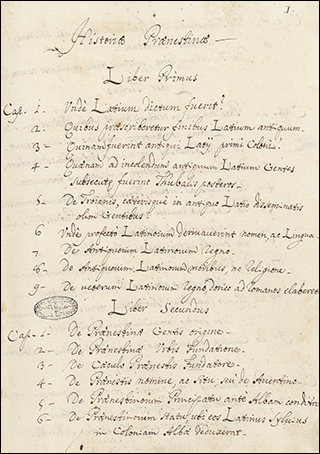 1.
Historiæ Prænestinæ —
Liber Primus
Cap. 1- Unde Latium dictum fuerit?
2- Quibus præscriberetur finibus Latium antiquum.
3- Quinam fuerint antiqui Latij primi Coloni?
4- Quænam ad incolendum antiquum Latium Gentes
subsecutæ fuerint Thubalis posteros-
5- De Troianis, cæterisque in antiquo Latio disseminatis
olim Gentibus?
6 Unde profecto Latinorum deriuauerint nomen, ac Lingua.
7- De Antiquorum Latinorum Regno.
8- De Antiquorum Latinorum moribus, ac Religione.
9- De ueterum Latinorum Regno, donec ad Romanos
Liber Secundus
Cap. 1- De Prænestinæ Gentis origine-
2- De Prænestinæ Urbis fundatione.
3- De Cæculo Prænestis fundatore.
4- De Prænestis nomine, ac situ, seu de Auentino-
5- De Prænestinorum Principatu ante Albam
6- De Prænestinorum Statu, ubi eos Latinus Syluius
in Coloniam Albæ deduxerat-